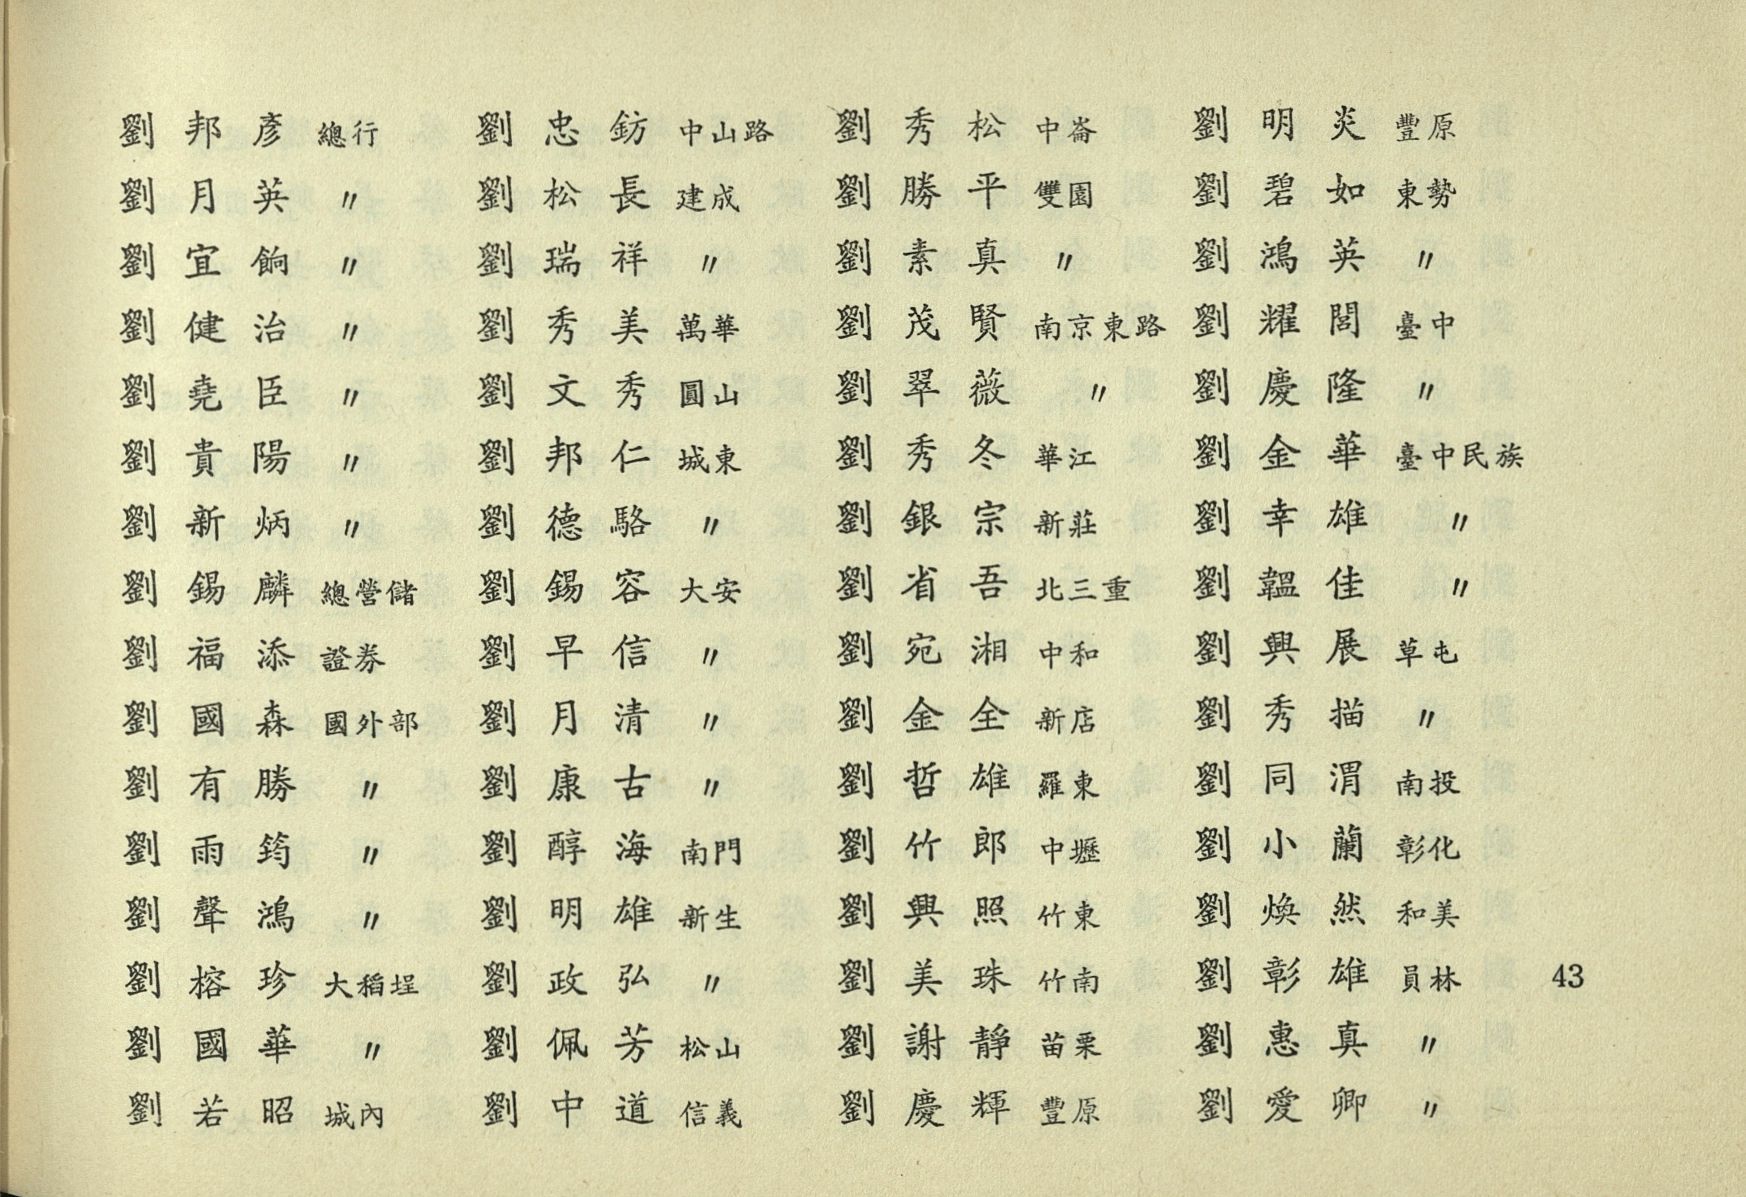 劉邦彥 總行
劉月英 〃
劉宜餉 〃
劉健治 〃
劉堯臣 〃
劉貴陽 〃
劉新炳 〃
劉錫麟 總營儲
劉福添 證券
劉國森 國外部
劉有勝 〃
劉雨筠 〃
劉聲鴻 〃
劉榕珍 大稻埕
劉國華 〃
劉若昭 城內
劉忠鈁 中山路
劉松長 建成
劉瑞祥 〃
劉秀美 萬華
劉文秀 圓山
劉邦仁 城東
劉德駱 〃
劉錫容 大安
劉早信 〃
劉月清 〃
劉康古 〃
劉醇海 南門
劉明雄 新生
劉政弘 〃
劉佩芳 松山
劉中道 信義
劉秀松 中崙
劉勝平 雙園
劉素真 〃
劉茂賢 南京東路
劉翠薇 〃
劉秀冬 華江
劉銀宗 新莊
劉省吾 北三重
劉宛湘 中和
劉金全 新店
劉哲雄 羅東
劉竹郎 中壢
劉興照 竹東
劉美珠 竹南
劉謝靜 苗栗
劉慶輝 豐原
劉明炎 豐原
劉碧如 東勢
劉鴻英 〃
劉耀閭 臺中
劉慶隆 〃
劉金華 臺中民族
劉幸雄 〃
劉韞佳 〃
劉興展 草屯
劉秀描 〃
劉同渭 南投
劉小蘭 彰化
劉煥然 和美
劉彰雄 員林
劉惠真 〃
劉愛卿 〃
43